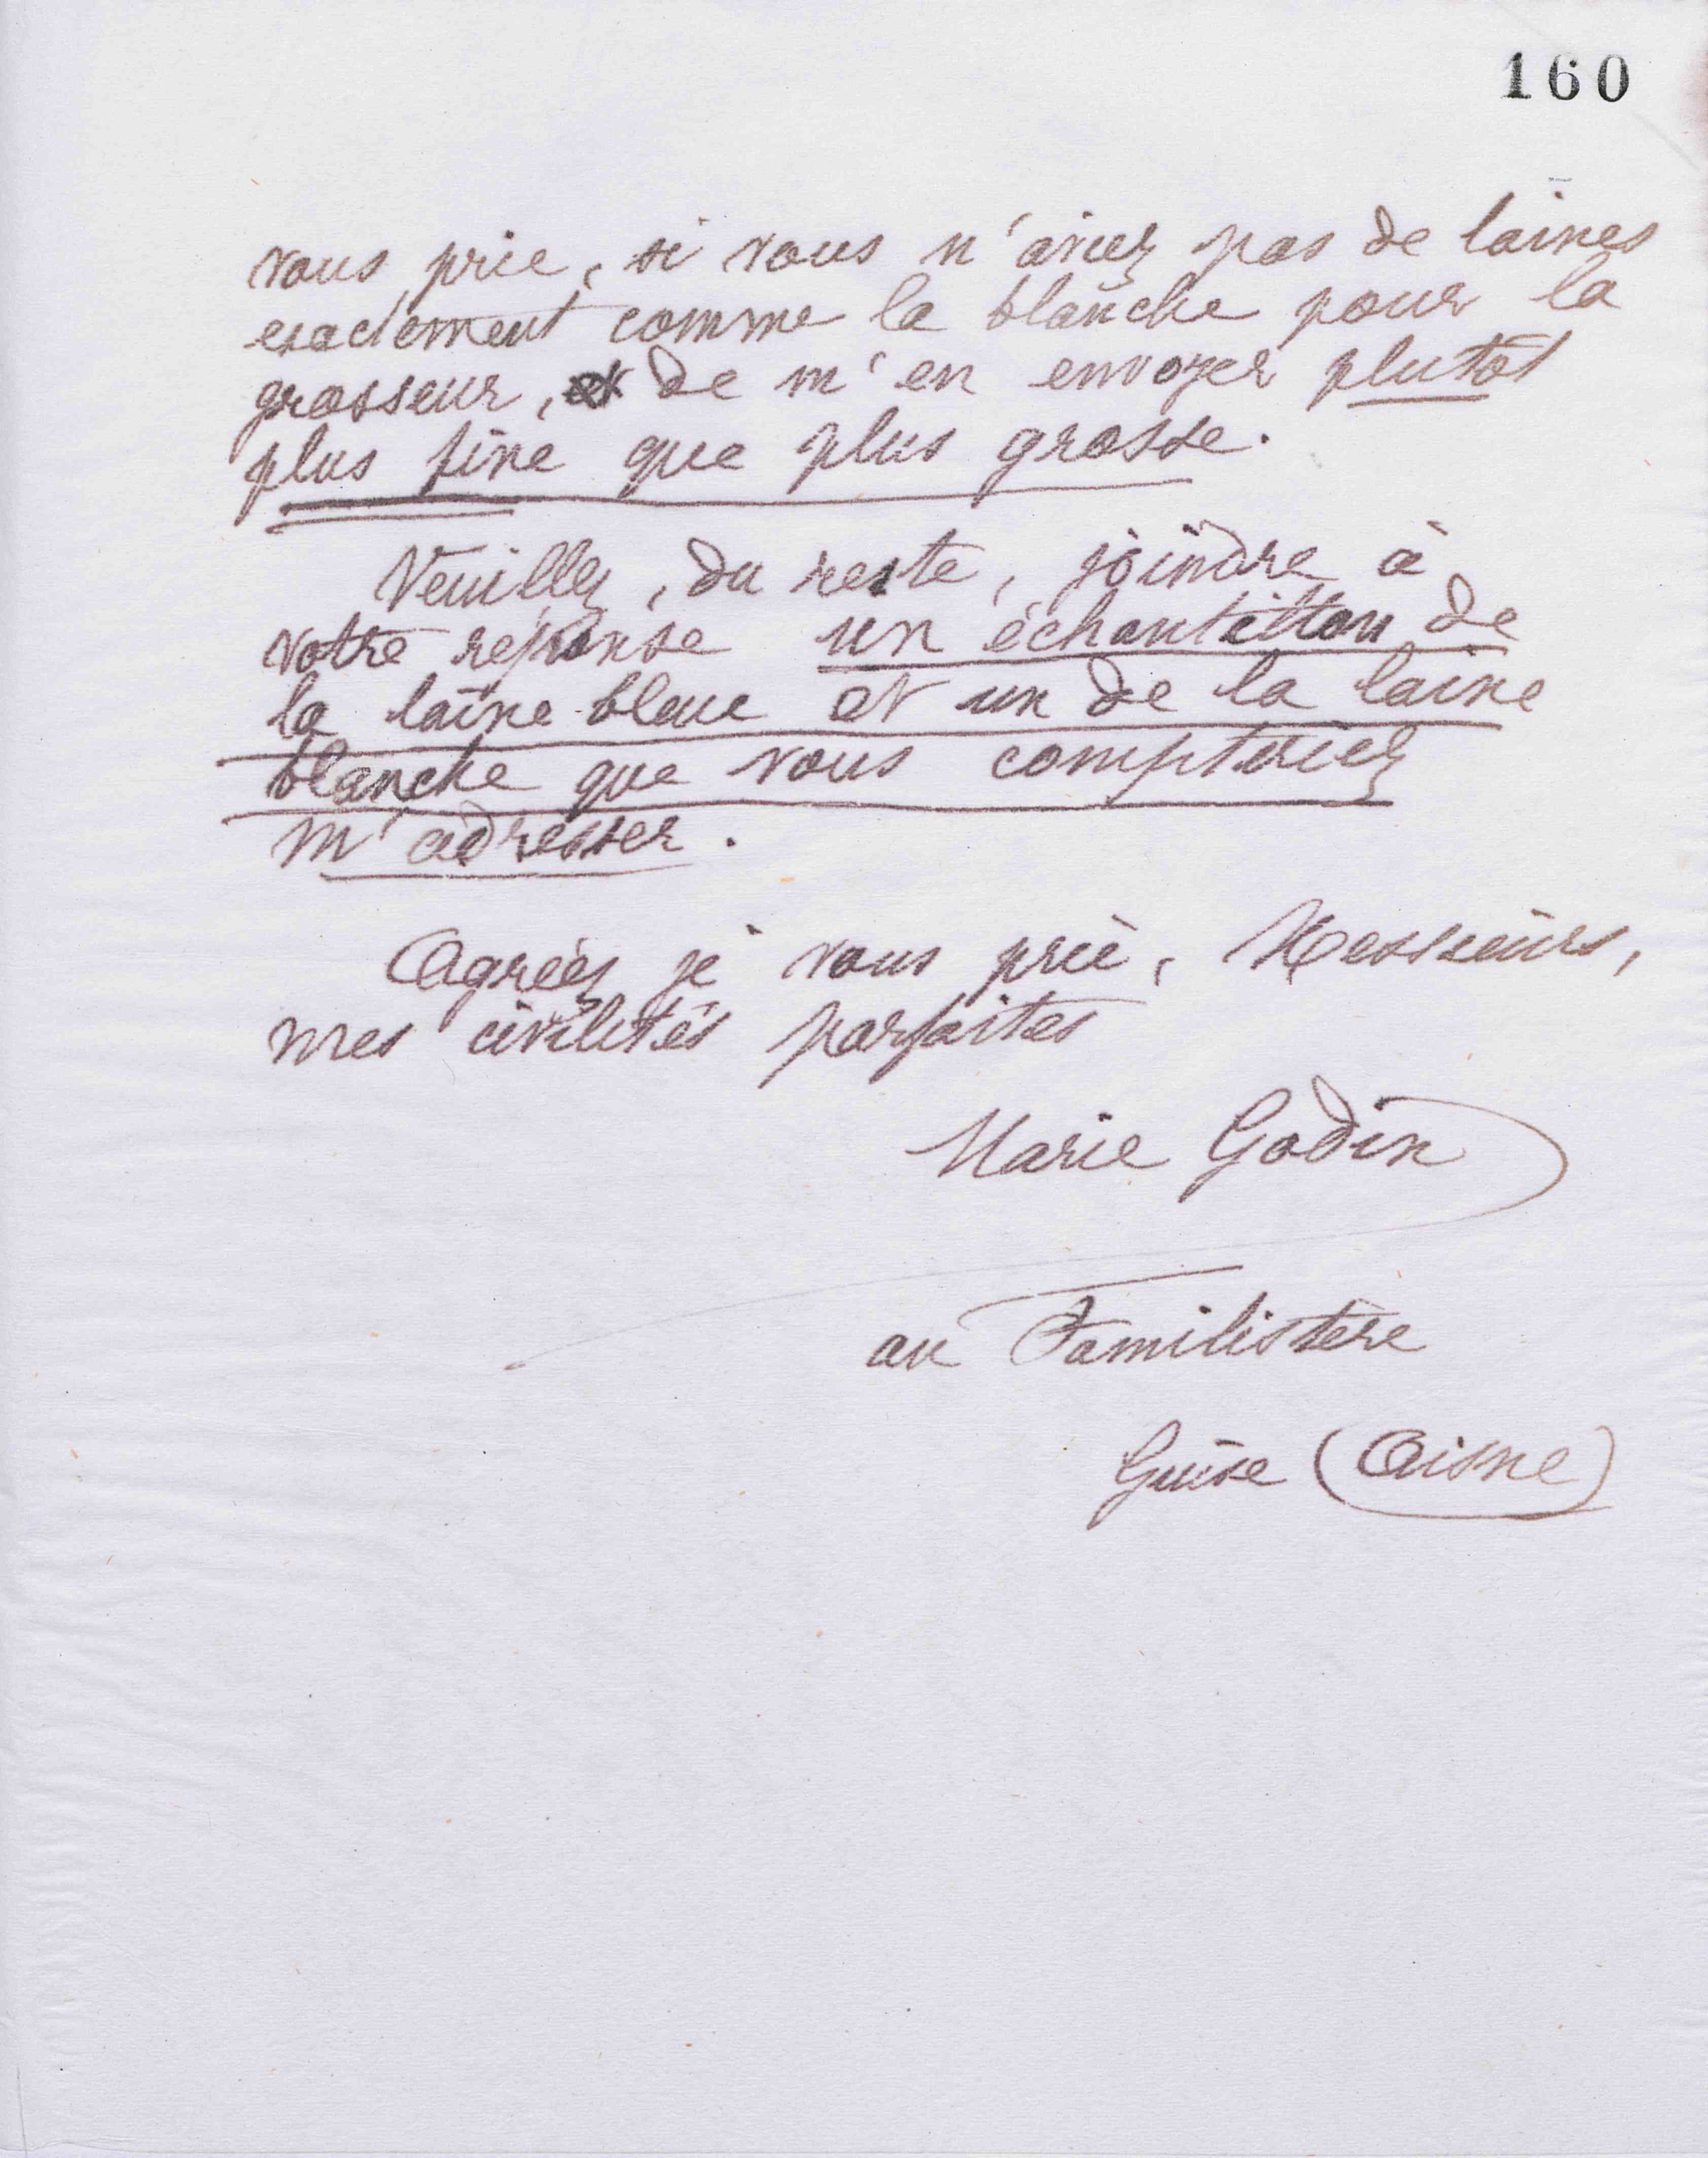 160
vous prie, si vous n'aviez pas de laines
exactement comme la blanche pour la
grosseur, de m'en envoyer plutôt
plus fine que plus grosse.
Veuillez, du reste, joindre à
votre réponse un échantillon de
la laine bleue et un de la laine
blanche que vous compteriez
m'adresser.
Agréez je vous prie, Messieurs,
mes civilités parfaites
Marie Godin
au Familistère
Guise (Aisne)